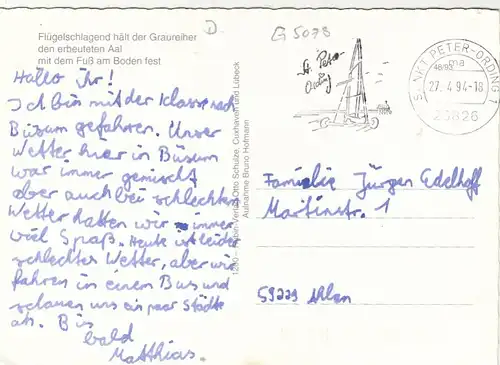 Flügelschlagend hält der Graureiher
den erbeuteten Aal
mit dem Fuß am Boden fest
D
G 5078
Hallo ihr!
Ich bin mit der Klasse nach
Büsum gefahren. Unser
Wetter hier in Büsum
war immer gemischt
aber auch bei schlechten
Wetter hatten wir immer
viel Spaß. Heute ist leider
schlechtes Wetter, aber wir
fahren in einem Bus und
schauen uns ein paar Städte
an. Bis
bald
Matthias.
Schulze, Cuxhaven und Lübeck
Aufnahme Bruno Hofmann
St. Peter-
Ording
SANKT PETER-ORDING 1
ma
27.4.94-18
25826
Familie Jürgen Edelhoff
Martinstr. 1
59229 Ahlen